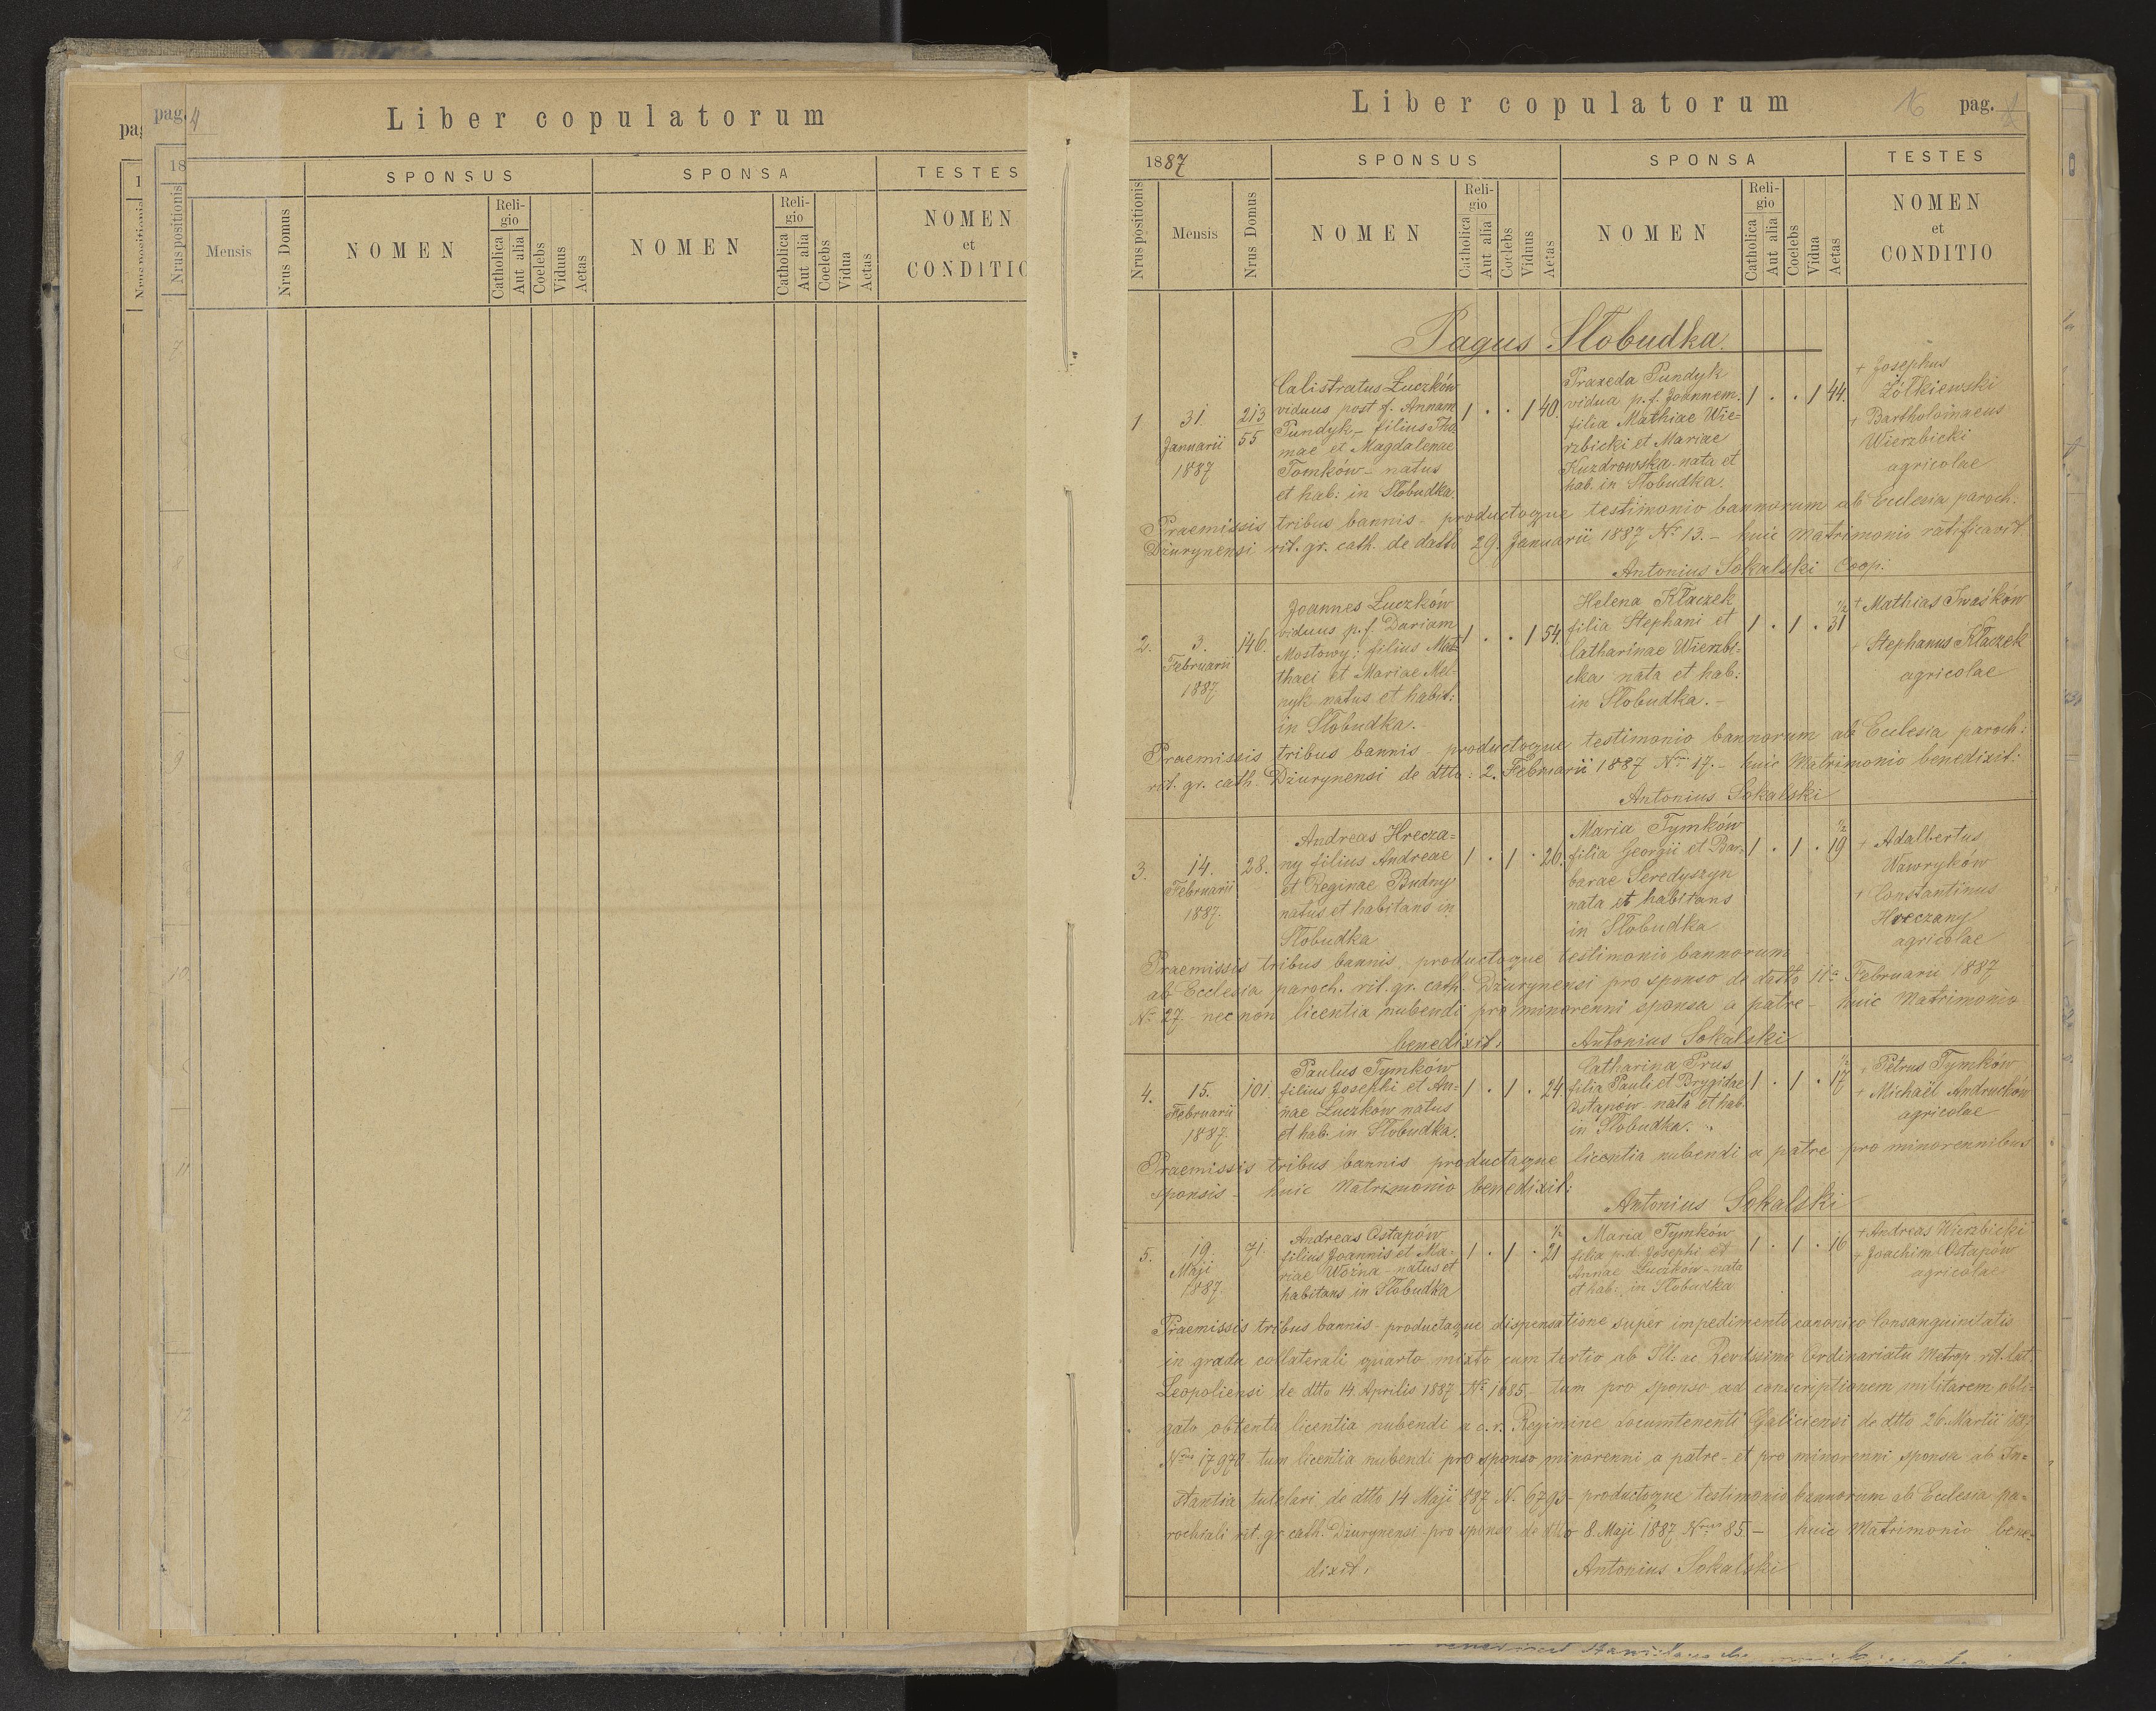 pag.
pag. 4
Liber copulatorum
18
SPONSUS
SPONSA
TESTES
Nrus positionis
Mensis
Nrus Domus
NOMEN
Religio
Catholica
Aut alia
Coelebs
Viduus
Aetas
NOMEN
Religio
Catholica
Aut alia
Coelebs
Vidua
Aetas
NOMEN
et
CONDITIO
7
8
9
10
11
12
Liber copulatorum
16 pag.
1887
SPONSUS
SPONSA
TESTES
Nrus positionis
Mensis
Nrus Domus
NOMEN
Religio
Catholica
Aut alia
Coelebs
Viduus
Aetas
NOMEN
Religio
Catholica
Aut alia
Coelebs
Vidua
Aetas
NOMEN
et
CONDITIO
Pagus Słobudka.
1
31.
Januarii
1887
213
55
Calistratus Łuczków
viduus post f. Annam
Pundyk – filius Tho
mae et Magdalenae
Tomków – natus
et hab: in Słobudka.
1 . . 1 40.
Praxeda Pundyk
vidua p. f. Joannem.
filia Mathiae Wie=
rzbicki et Mariae
Kuzdrowska – nata et
hab. in Słobudka.
1 . . 1 44.
+ Josephus
Żółkiewski
+ Bartholomaeus
Wierzbicki
agricolae
Praemissis tribus bannis – productoque testimonio bannorum ab Ecclesia paroch.
Dżurynensi rit. gr. cath. de datto 29. Januarii 1887 Nº 13. – huic Matrimonio ratificavit.
Antonius Sokalski Coop.
2.
3.
Februarii
1887.
146.
Joannes Łuczków
viduus p. f. Dariam
Mostowy; filius Mat=
thaei et Mariae Mel=
nyk natus et habit:
in Słobudka. –
1 . . 1 54.
Helena Kłaczek
filia Stephani et
Catharinae Wierzbi=
cka nata et hab:
in Słobudka. –
1 . 1 . 31 ½
+ Mathias Iwaśków
+ Stephanus Kłaczek
agricolae
Praemissis tribus bannis – productoque testimonio bannorum ab Ecclesia paroch:
rit. gr. cath. Dżurynensi de dtto: 2. Februarii 1887 Nro 17. – huic Matrimonio benedixit:
Antonius Sokalski
3.
14.
Februarii
1887.
28.
Andreas Hrecza=
ny filius Andreae
et Reginae Budny
natus et habitans in
Słobudka
1 . 1 . 26.
Maria Tymków
filia Georgii et Bar=
barae Seredyszyn
nata et habitans
in Słobudka
1 . 1 . 19 ½
+ Adalbertus
Wawryków
+ Constantinus
Hreczany
agricolae
Praemissis tribus bannis, productoque testimonio bannorum
ab Ecclesia paroch. rit. gr. cath. Dżurynensi pro sponso de datto 11a Februarii 1887
Nº 27 – nec non licentia nubendi pro minorenni sponsa a patre – huic Matrimonio
benedixit: Antonius Sokalski
4.
15.
Februarii
1887.
101.
Paulus Tymków
filius Josephi et An=
nae Łuczków natus
et hab. in Słobudka.
1 . 1 . 24
Catharina Prus
filia Pauli et Brygidae
Ostapów – nata et hab.
in Słobudka.
1 . 1 . 17 ½
+ Petrus Tymków
+ Michaël Andruchów
agricolae
Praemissis tribus bannis productaque licentia nubendi a patre pro minorennibus
sponsis – huic Matrimonio benedixit:
Antonius Sokalski
5.
19.
Maji
1887.
71.
Andreas Ostapów
filius Joannis et Ma=
riae Woźna – natus et
habitans in Słobudka
1 . 1 . 21 ½
Maria Tymków
filia p. d. Josephi et
Annae Łuczków – nata
et hab. in Słobudka
1 . 1 . 16
+ Andreas Wierzbicki
+ Joachim Ostapów
agricolae
Praemissis tribus bannis – productaque dispensatione super impedimento canonico Consanguinitatis
in gradu collaterali quarto mixto cum tertio ab Ill: ac Revdssimo Ordinariatu Metrop. rit. lat.
Leopoliensi de dtto 14. Aprilis 1887 Nº 1685 – tum pro sponso ad conscriptionem militarem obli=
gato obtenta licentia nubendi a c. r. Regimine Locumtenenti Galiciensi de dtto 26. Martii 1887
Nro 17970 – tum licentia nubendi pro sponso minorenni a patre – et pro minorenni sponsa ab In=
stantia tutelari de dtto 14 Maji 887 N. 6793 – productoque testimonio bannorum ab Ecclesia pa=
rochiali rit. gr. cath. Dżurynensi pro sponso de dtto 8. Maji 1887 Nro 85 – huic Matrimonio bene=
dixit: Antonius Sokalski